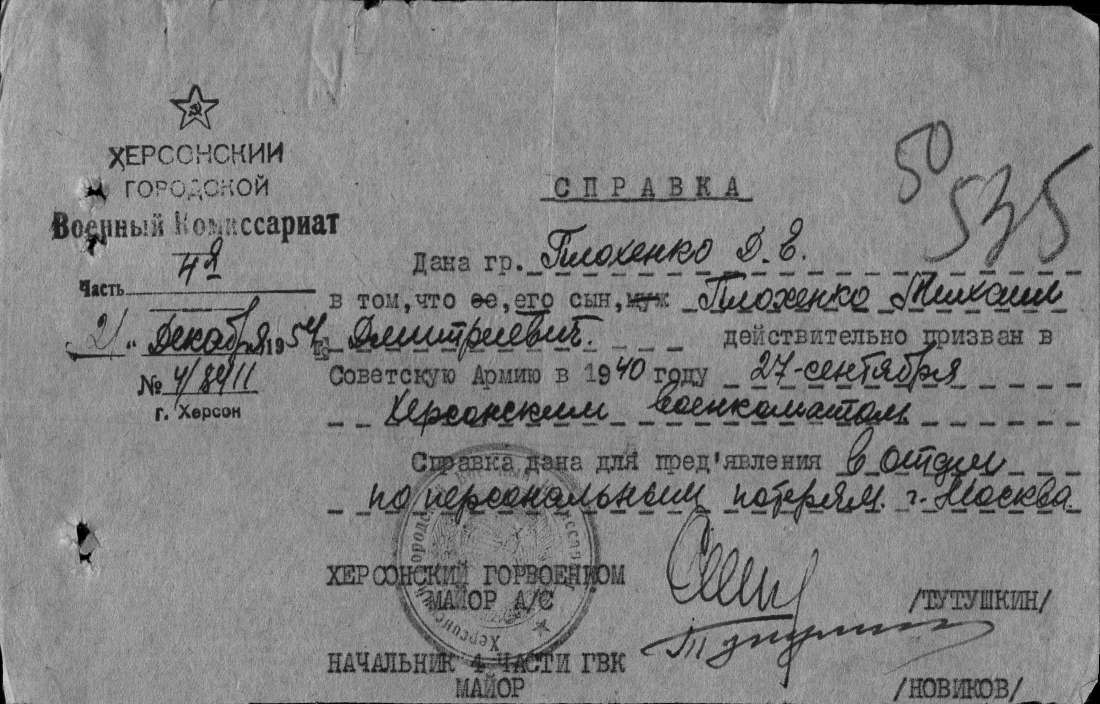 ХЕРСОНСКИЙ
ГОРОДСКОЙ
Военный Комиссариат
Часть 4я
21 " Декабря 1954 г.
№ 4/8911
г. Херсон
50
535
СПРАВКА
Дана гр. Плохенко Д. Е.
в том, что ее, его сын, муж Плохенко Михаил
Дмитриевич. действительно призван в
Советскую Армию в 1940 году 27-сентября
Херсонским военкоматом
Справка дана для пред'явления в отдел
по персональным потерям. г. Москва
ХЕРСОНСКИЙ ГОРВОЕНКОМ
МАЙОР А/С /ТУТУШКИН/
НАЧАЛЬНИК 4 ЧАСТИ ГВК
МАЙОР /НОВИКОВ/